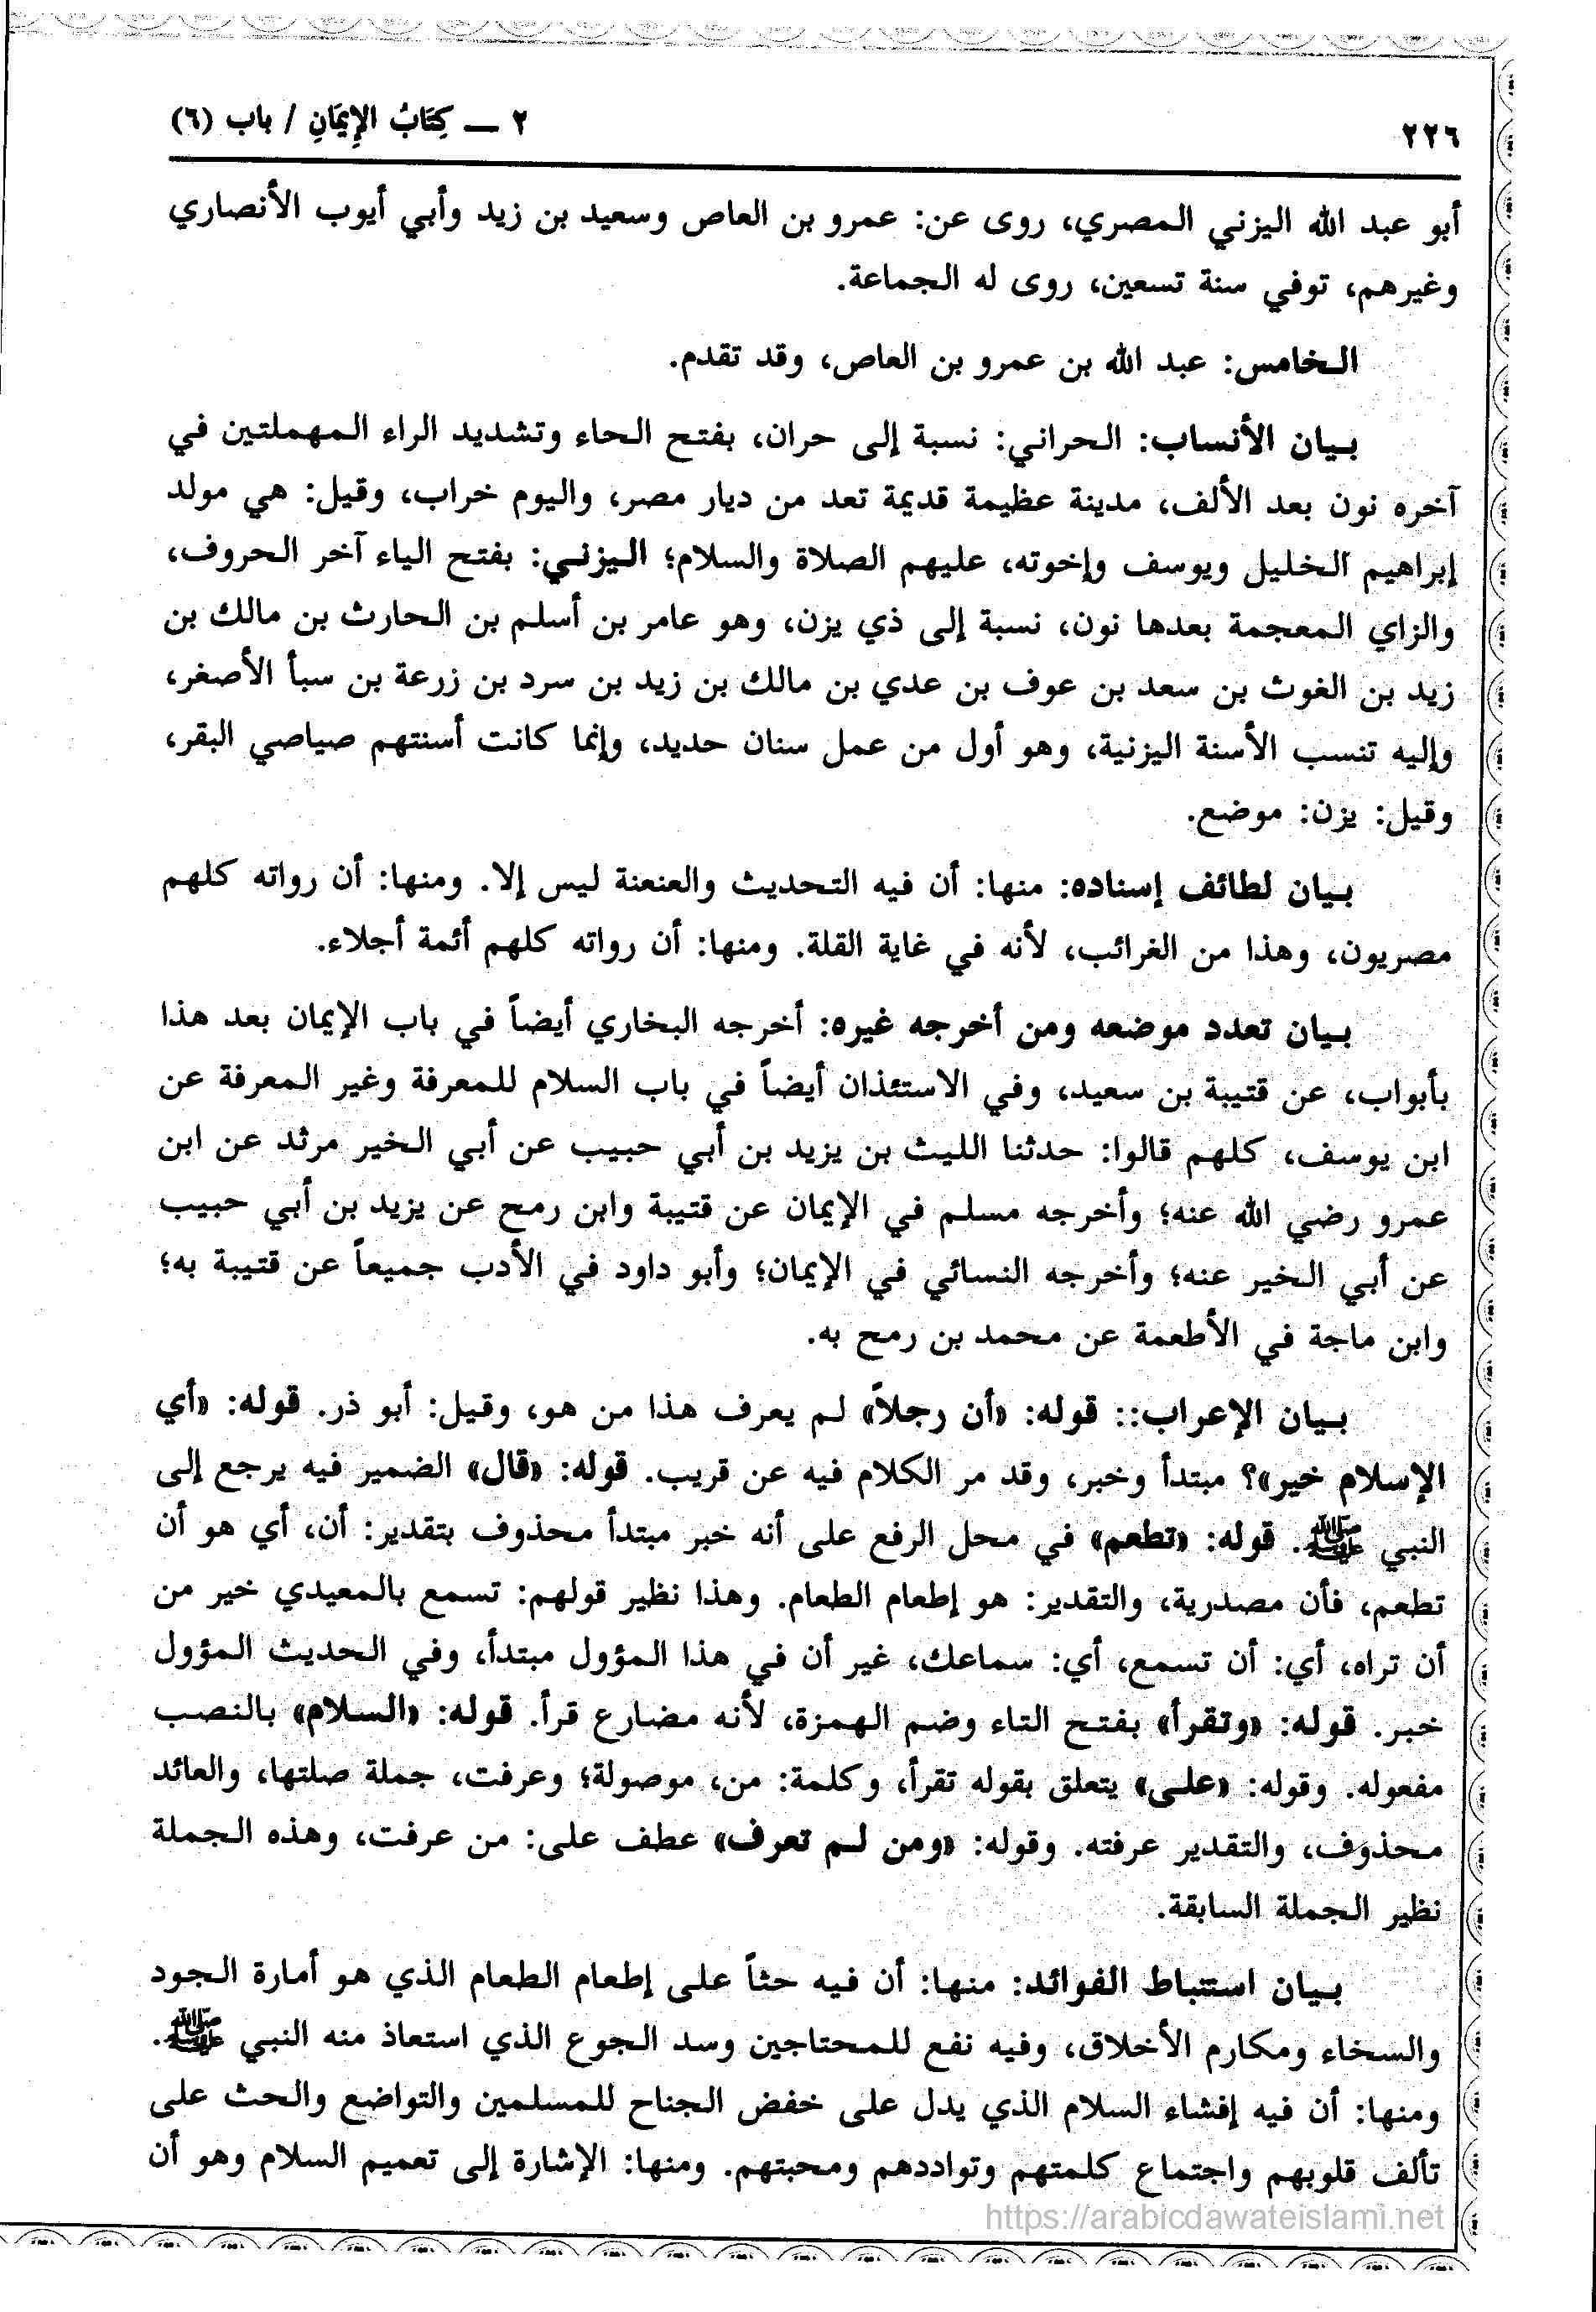 ٢٢٦
٢ — كِتَابُ الإِيمَانِ / باب (٦)
أبو عبد الله اليزني المصري، روى عن: عمرو بن العاص وسعيد بن زيد وأبي أيوب الأنصاري
وغيرهم، توفي سنة تسعين، روى له الجماعة.
الخامس: عبد الله بن عمرو بن العاص، وقد تقدم.
بيان الأنساب: الحراني: نسبة إلى حران، بفتح الحاء وتشديد الراء المهملتين في
آخره نون بعد الألف، مدينة عظيمة قديمة تعد من ديار مصر، واليوم خراب، وقيل: هي مولد
إبراهيم الخليل ويوسف وإخوته، عليهم الصلاة والسلام؛ اليزني: بفتح الياء آخر الحروف،
والزاي المعجمة بعدها نون، نسبة إلى ذي يزن، وهو عامر بن أسلم بن الحارث بن مالك بن
زيد بن الغوث بن سعد بن عوف بن عدي بن مالك بن زيد بن سرد بن زرعة بن سبأ الأصغر،
وإليه تنسب الأسنة اليزنية، وهو أول من عمل سنان حديد، وإنما كانت أسنتهم صياصي البقر،
وقيل: يزن: موضع.
بيان لطائف إسناده: منها: أن فيه التحديث والعنعنة ليس إلا. ومنها: أن رواته كلهم
مصريون، وهذا من الغرائب، لأنه في غاية القلة. ومنها: أن رواته كلهم أئمة أجلاء.
بيان تعدد موضعه ومن أخرجه غيره: أخرجه البخاري أيضاً في باب الإيمان بعد هذا
بأبواب، عن قتيبة بن سعيد، وفي الاستئذان أيضاً في باب السلام للمعرفة وغير المعرفة عن
ابن يوسف، كلهم قالوا: حدثنا الليث بن يزيد بن أبي حبيب عن أبي الخير مرثد عن ابن
عمرو رضي الله عنه؛ وأخرجه مسلم في الإيمان عن قتيبة وابن رمح عن يزيد بن أبي حبيب
عن أبي الخير عنه؛ وأخرجه النسائي في الإيمان؛ وأبو داود في الأدب جميعاً عن قتيبة به؛
وابن ماجة في الأطعمة عن محمد بن رمح به.
بيان الإعراب:: قوله: «أن رجلاً» لم يعرف هذا من هو، وقيل: أبو ذر. قوله: «أي
الإسلام خير»؟ مبتدأ وخبر، وقد مر الكلام فيه عن قريب. قوله: «قال» الضمير فيه يرجع إلى
النبي ﷺ. قوله: «تطعم» في محل الرفع على أنه خبر مبتدأ محذوف بتقدير: أن، أي هو أن
تطعم، فأن مصدرية، والتقدير: هو إطعام الطعام. وهذا نظير قولهم: تسمع بالمعيدي خير من
أن تراه، أي: أن تسمع، أي: سماعك، غير أن في هذا المؤول مبتدأ، وفي الحديث المؤول
خبر. قوله: «وتقرأ» بفتح التاء وضم الهمزة، لأنه مضارع قرأ. قوله: «السلام» بالنصب
مفعوله. وقوله: «على» يتعلق بقوله تقرأ، وكلمة: من، موصولة؛ وعرفت، جملة صلتها، والعائد
محذوف، والتقدير عرفته. وقوله: «ومن لم تعرف» عطف على: من عرفت، وهذه الجملة
نظير الجملة السابقة.
بيان استنباط الفوائد: منها: أن فيه حثاً على إطعام الطعام الذي هو أمارة الجود
والسخاء ومكارم الأخلاق، وفيه نفع للمحتاجين وسد الجوع الذي استعاذ منه النبي ﷺ.
ومنها: أن فيه إفشاء السلام الذي يدل على خفض الجناح للمسلمين والتواضع والحث على
تألف قلوبهم واجتماع كلمتهم وتواددهم ومحبتهم. ومنها: الإشارة إلى تعميم السلام وهو أن
https://arabicdawateislami.net